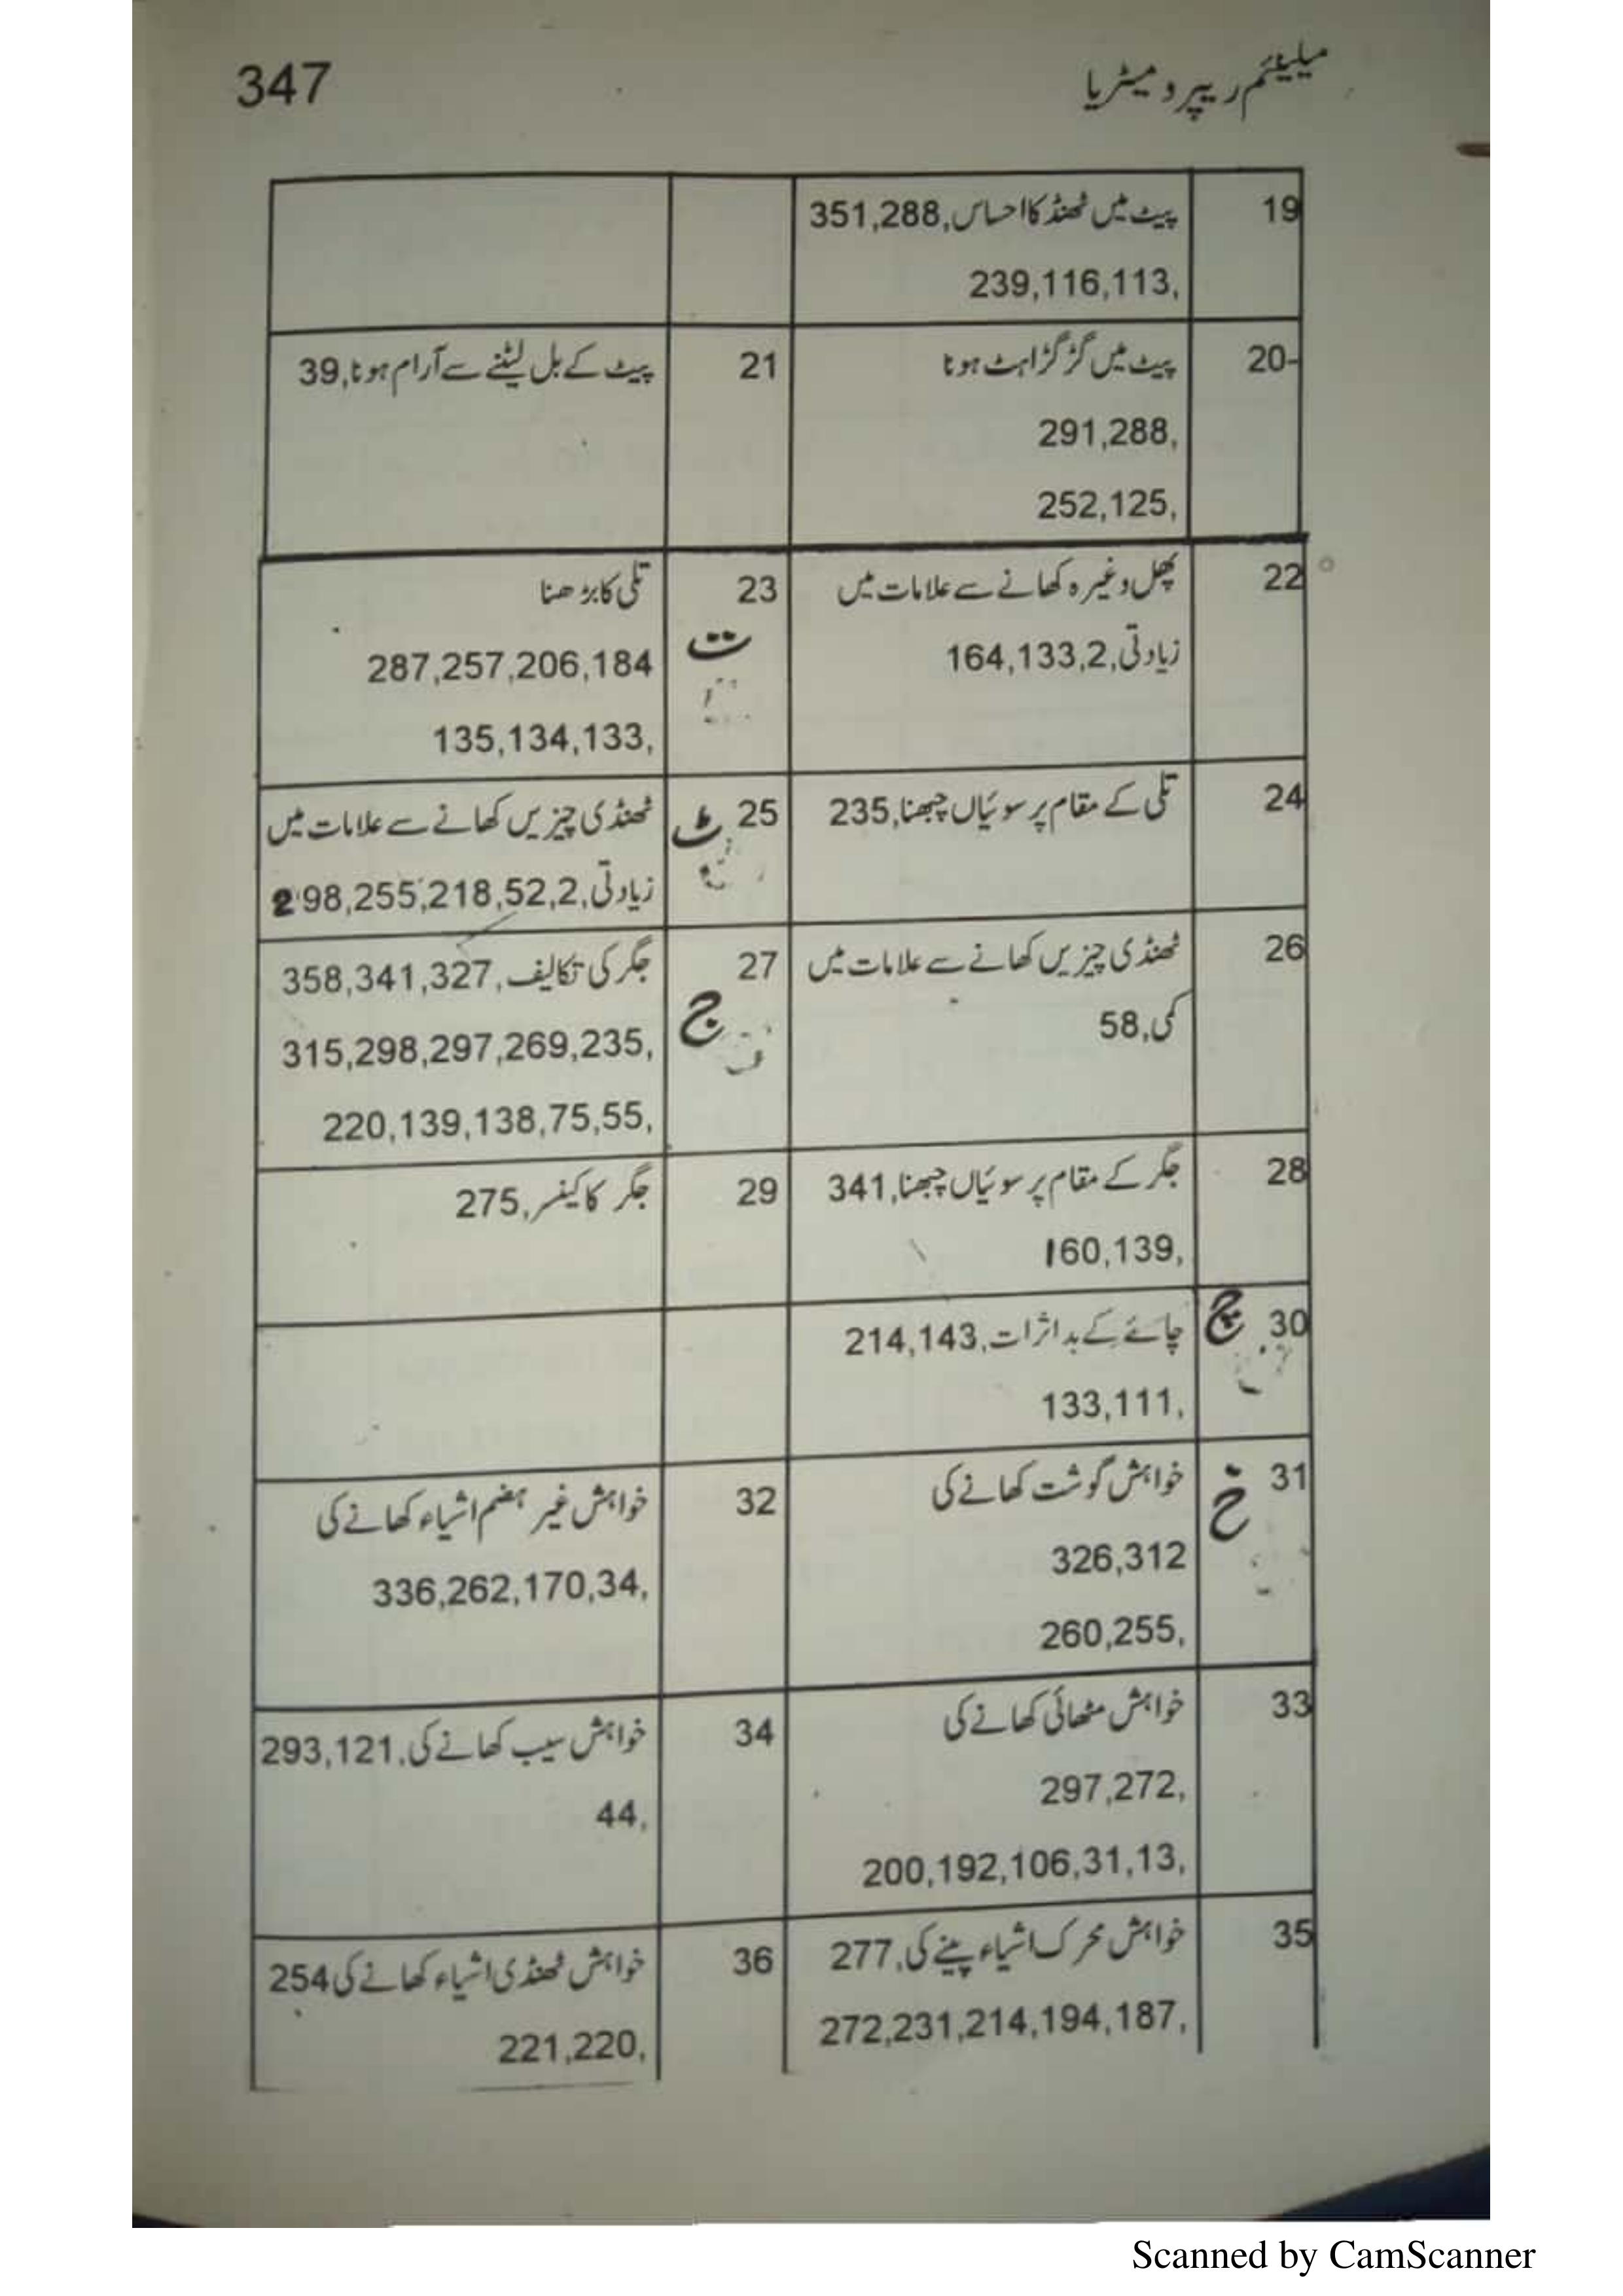 میلینئم ریپرومیٹریا
347
19
پیٹ میں ٹھنڈ کا احساس,351,288
239,116,113,
20-
پیٹ میں گڑگڑاہٹ ہونا
291,288,
252,125,
21
پیٹ کے بل لیٹنے سے آرام ہونا,39
22
پھل وغیرہ کھانے سے علامات میں
زیادتی,164,133,2
23
ت
تلی کا بڑھنا
287,257,206,184
135,134,133,
24
تلی کے مقام پر سوئیاں چبھنا,235
25
ٹ
ٹھنڈی چیزیں کھانے سے علامات میں
زیادتی,298,255,218,52,2
26
ٹھنڈی چیزیں کھانے سے علامات میں
کمی,58
27
ج
جگر کی تکالیف,358,341,327
315,298,297,269,235,
220,139,138,75,55,
28
جگر کے مقام پر سوئیاں چبھنا,341
160,139,
29
جگر کا کینسر,275
30
چ
چائے کے بد اثرات,214,143
133,111,
31
خ
خواہش گوشت کھانے کی
326,312
260,255,
32
خواہش غیر ہضم اشیاء کھانے کی
336,262,170,34,
33
خواہش مٹھائی کھانے کی
297,272,
200,192,106,31,13,
34
خواہش سیب کھانے کی,293,121
44,
35
خواہش محرک اشیاء پینے کی,277
272,231,214,194,187,
36
خواہش ٹھنڈی اشیاء کھانے کی254
221,220,
Scanned by CamScanner